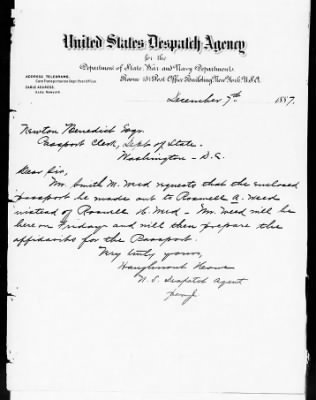 United States Despatch Agency
for the
Department of State, War and Navy Departments
Room 131 Post Office Building, New York, U.S.A.
ADDRESS TELEGRAMS,
CABLE ADDRESS
December 7th 1887.
Newton Benedict Esqr.
Passport Clerk, Dept of State.
Washington - D.C.
Dear Sir,
Mr. Smith M. Weed requests that the enclosed
passport be made out to Roswell A. Weed
instead of Roswell H. Weed - Mr. Weed will be
here on Friday and will then prepare the
affidavits for the Passport.
Very truly yours,
U.S. Despatch Agent